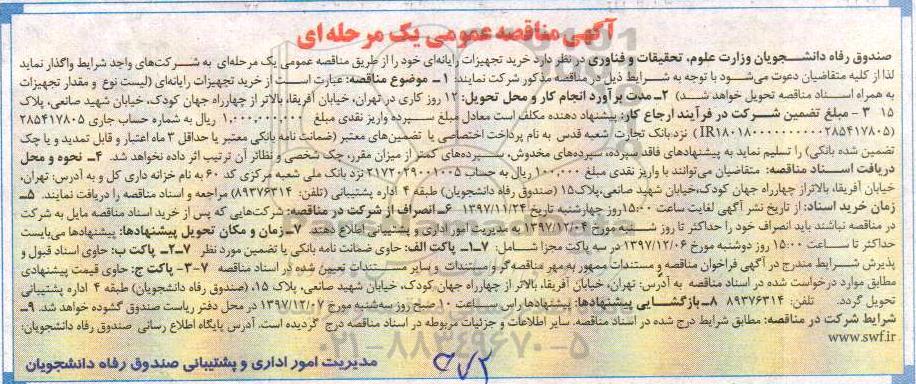 آگهی مناقصه عمومی یک مرحله ای
صندوق رفاه دانشجویان وزارت علوم، تحقیقات و فناوری در نظر دارد خرید تجهیزات رایانه‌ای خود را از طریق مناقصه عمومی یک مرحله‌ای به شرکت‌های واجد شرایط واگذار نماید
لذا از کلیه متقاضیان دعوت می‌شود با توجه به شرایط ذیل در مناقصه مذکور شرکت نمایند: ۱ـ موضوع مناقصه: عبارت است از خرید تجهیزات رایانه‌ای (لیست نوع و مقدار تجهیزات
به همراه اسناد مناقصه تحویل خواهد شد) ۲ـ مدت برآورد انجام کار و محل تحویل: ۱۲ روز کاری در تهران، خیابان آفریقا، بالاتر از چهارراه جهان کودک، خیابان شهید صانعی، پلاک
۱۵ ۳ - مبلغ تضمین شرکت در فرآیند ارجاع کار: پیشنهاد دهنده مکلف است معادل مبلغ سپرده واریز نقدی مبلغ ۱,۰۰۰,۰۰۰,۰۰۰ ریال به شماره حساب جاری ۲۸۵۴۱۷۸۰۵
نزد بانک تجارت شعبه قدس به نام پرداخت اختصاصی یا تضمین‌های معتبر (ضمانت نامه بانکی معتبر یا حداقل ۳ ماه اعتبار و قابل تمدید و یا چک
تضمین شده بانکی) را تسلیم نماید به پیشنهادهای فاقد سپرده، سپرده‌های مخدوش، سپرده‌های کمتر از میزان مقرر، چک شخصی و نظائر آن ترتیب اثر داده نخواهد شد. ۴ـ نحوه و محل
دریافت اسناد مناقصه: متقاضیان می‌توانند با واریز نقدی مبلغ ۱۰۰,۰۰۰ ریال به حساب ۲۱۷۴۰۲۹۰۰۱۰۰۵ نزد بانک ملی شعبه مرکزی کد ۶۰ به نام خزانه داری کل و به آدرس: تهران،
خیابان آفریقا، بالاتر از چهارراه جهان کودک، خیابان شهید صانعی، پلاک۱۵ (صندوق رفاه دانشجویان) طبقه ۴ اداره پشتیبانی (تلفن: ۸۹۳۷۶۳۱۴) مراجعه و اسناد مناقصه را دریافت نمایند. ۵ـ
زمان خرید اسناد: از تاریخ نشر آگهی لغایت ساعت ۱۵:۰۰ روز چهارشنبه تاریخ ۱۳۹۷/۱۱/۲۴ ۶ـ انصراف از شرکت در مناقصه: شرکت‌هایی که پس از خرید اسناد مناقصه مایل به شرکت
در مناقصه نباشند باید انصراف خود را حداکثر تا روز شنبه مورخ ۱۳۹۷/۱۲/۰۴ به مدیریت امور اداری و پشتیبانی اطلاع دهند ۷ـ زمان و مکان تحویل پیشنهادها: پیشنهادها می‌بایست
حداکثر تا ساعت ۱۵:۰۰ روز دوشنبه مورخ ۱۳۹۷/۱۲/۰۶ در سه پاکت مجزا شامل: ۷-۱ـ پاکت الف: حاوی ضمانت نامه بانکی یا تضمین مورد نظر ۷-۲ـ پاکت ب: حاوی اسناد قبول و
پذیرش شرایط مندرج در آگهی فراخوان مناقصه و مستندات ممهور به مهر مناقصه‌گر و مستندات و سایر مستندات تعیین شده در اسناد مناقصه ۷-۳ـ پاکت ج: حاوی قیمت پیشنهادی
مطابق موارد درخواست شده در اسناد مناقصه به آدرس: تهران، خیابان آفریقا، بالاتر از چهارراه جهان کودک، خیابان شهید صانعی، پلاک ۱۵، (صندوق رفاه دانشجویان) طبقه ۴ اداره پشتیبانی
تحویل گردد. تلفن: ۸۹۳۷۶۳۱۴ ۸ـ بازگشایی پیشنهادها: پیشنهادها راس ساعت ۱۰ صبح روز سه‌شنبه مورخ ۱۳۹۷/۱۲/۰۷ در محل دفتر ریاست صندوق گشوده خواهد شد. ۹ـ
شرایط شرکت در مناقصه: مطابق شرایط درج شده در اسناد مناقصه. سایر اطلاعات و جزئیات مربوطه در اسناد مناقصه درج گردیده است. آدرس پایگاه اطلاع رسانی صندوق رفاه دانشجویان:
www.swf.ir
مدیریت امور اداری و پشتیبانی صندوق رفاه دانشجویان
۰۲۱-۸۸۳۴۹۶۷۰-۵